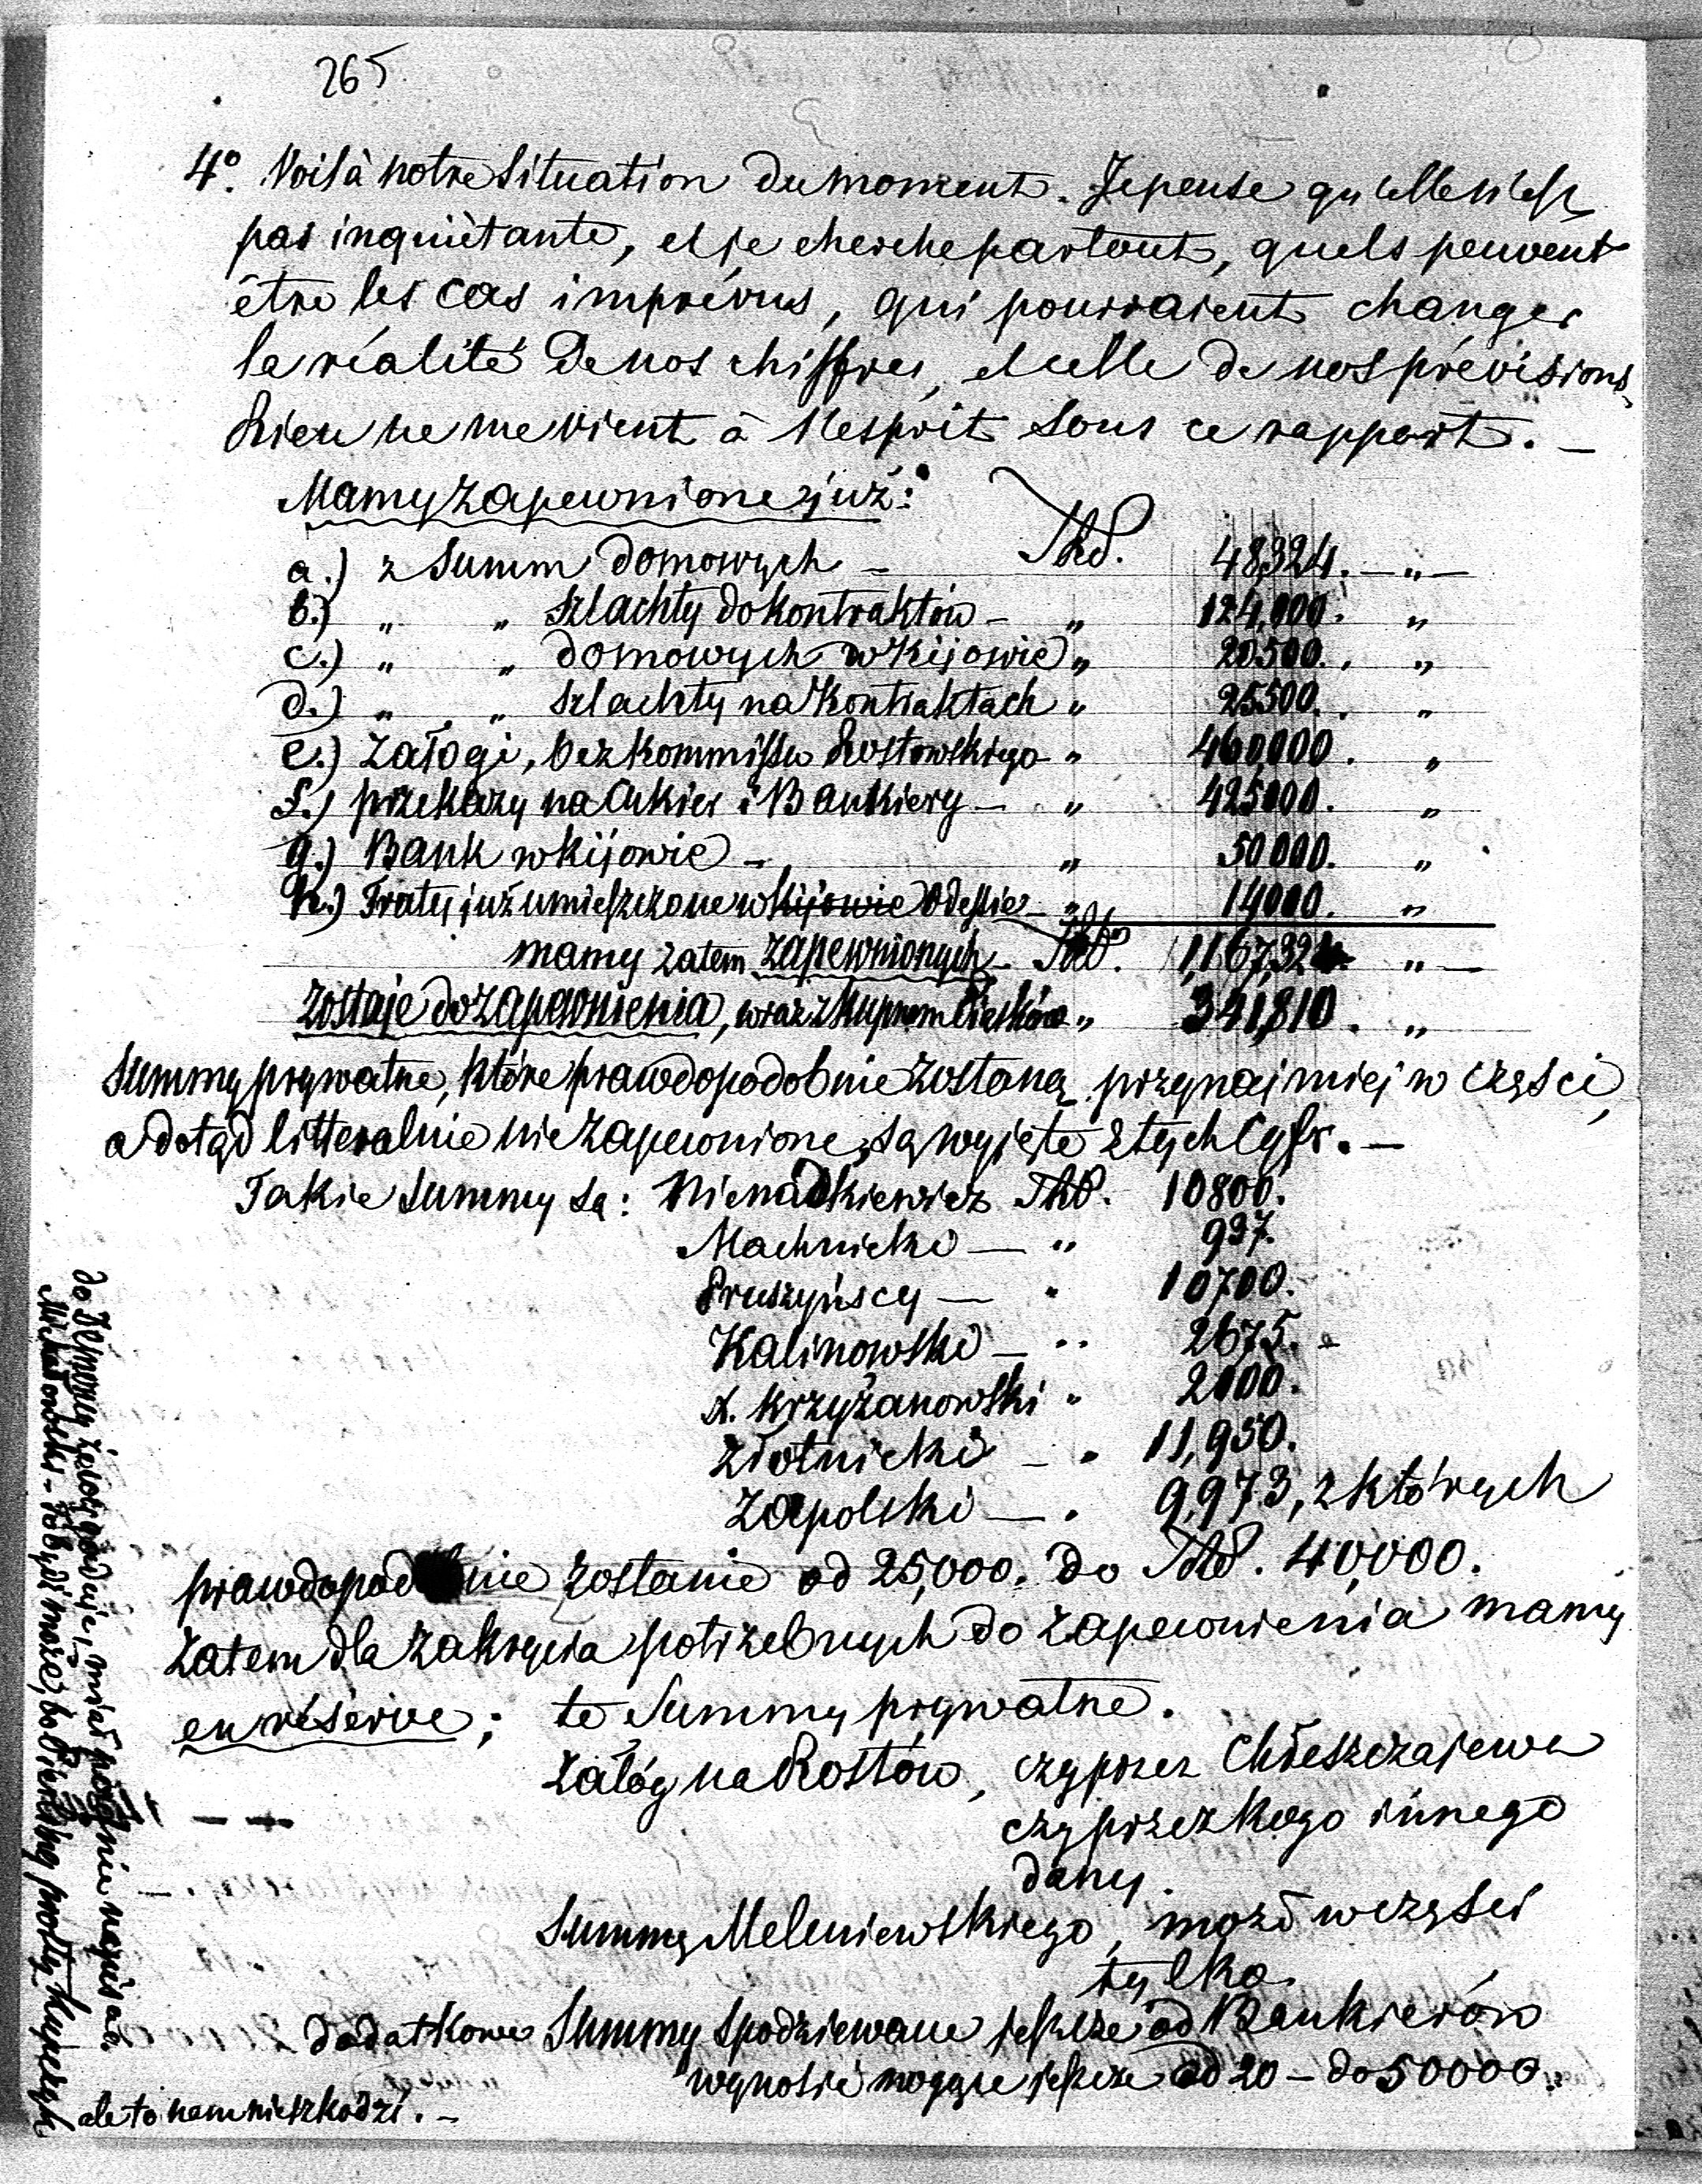 265
4º. Voilà notre situation du moment. Je pense qu'elle n'est
pas inquiètante, et je cherche partout, quels peuvent
être les cas imprévus, qui pourraient changer
la réalité de nos chiffres, et celle de nos prévisions,
Rien ne me vient à l'esprit sous ce rapport. —
Mamy zapewnione już:
a.) z Summ domowych — Rhd. 48,324. — „ —
b.) „ „ szlachty do kontraktów — „ 124,000. „
c.) „ „ domowych w Kijowie „ 20500. „
d.) „ „ szlachty na Kontraktach „ 25500. „
e.) Załogi, bez kommissu Rostowskiego „ 460,000. „
f.) przekazy na Cukier i Bankiery — „ 425000. „
g.) Bank w Kijowie — „ 50,000. „
h.) Traty już umieszczone w Kijowie Odessie — „ 14000. „
mamy zatem zapewnionych — Rhd. 1,167,324 „ —
zostaje do zapewnienia, wraz z kupnem „ 341,810. „
Summy prywatne, które prawdopodobnie zostaną przynajmniej w części,
a dotąd litteralnie nie zapewnione, są wyjęte z tych Cyfr. —
Takie Summy są: Nienadkiewicz Rhd. 10800.
Machnicki — „ 997.
Pruszyńscy — „ 10700.
Kalinowski — „ 2675.
X. Krzyżanowski „ 2000.
Złotnicki — „ 11,950.
Zapolski — „ 9,973, z których
prawdopodobnie zostanie od 25,000. do Rhd. 40,000.
Zatem dla zakrycia potrzebnych do zapewnienia mamy
en réserve; te Summy prywatne.
załóg na Rostów, czy przez Chłeszczajewa
czy przez kogo innego
dany.
Summę Meleniewskiego, może w części
tylko.
dodatkowe Summy spodziewane jeszcze od Bankierów
wynosić mogące jeszcze od 20 — do 50000.
do że mię miał napisać.
Michałowski — być może, bo prosty kupczyk
ale to nam nie szkodzi. —